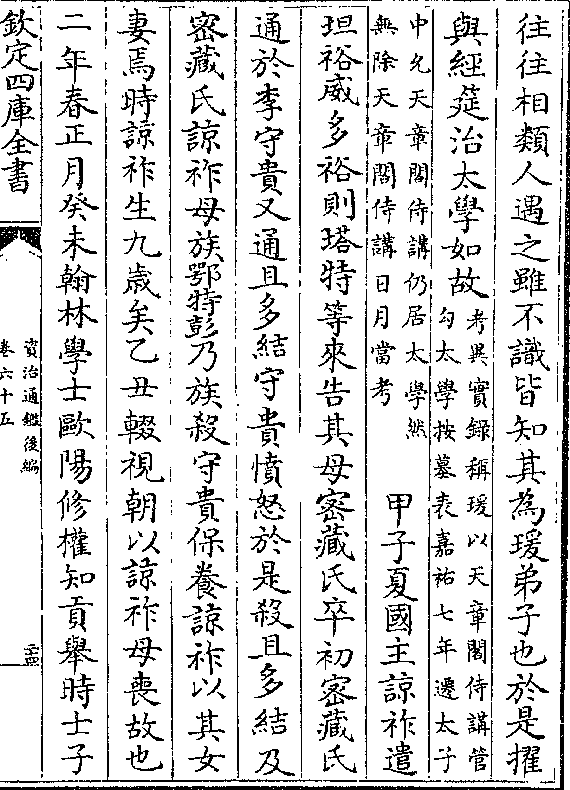 往往相類人遇之雖不識皆知其為瑗弟子也於是擢
與經筵治太學如故考異實録稱瑗以天章閣侍講管
勾太學按墓表嘉祐七年遷太子
中允天章閣侍講仍居太學然
無除天章閣侍講日月當考
甲子夏國主諒祚遣
坦裕威多裕則塔特等來告其母密藏氏卒初密藏氏
通於李守貴又通且多結守貴憤怒於是殺且多結及
密藏氏諒祚母族鄂特彭乃族殺守貴保養諒祚以其女
妻焉時諒祚生九歳矣乙丑輟視朝以諒祚母喪故也
二年春正月癸未翰林學士歐陽修權知貢舉時士子
欽定四庫全書
資治通鑑後編
卷六十五
二十四